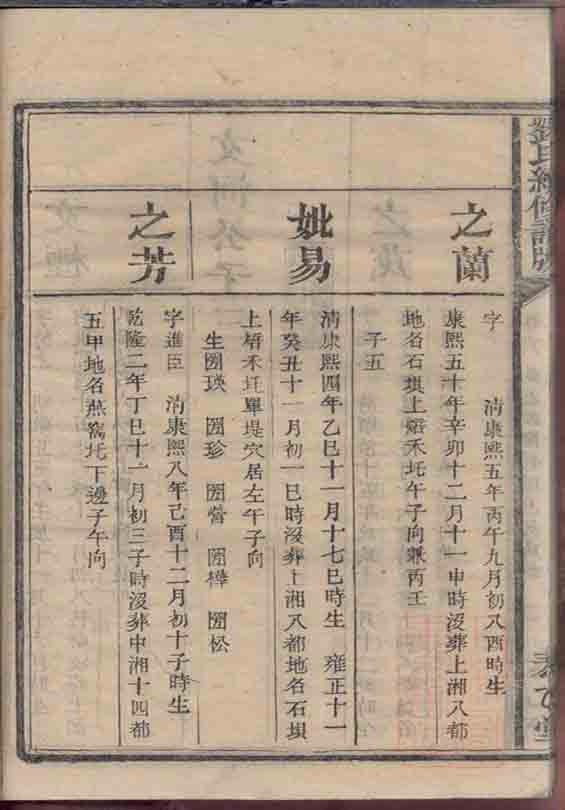 劉氏續修譜牒
之蘭
字 清康熙五年丙午九月初八酉時生
康熙五十年辛卯十二月十一申時沒葬上湘八都
地名石壩上𤲞禾圫午子向兼丙壬
子五
妣易
清康熙四年乙巳十一月十七巳時生 雍正十一
年癸丑十一月初一巳時沒葬上湘八都地名石壩
上 禾圫單堤穴居左午子向
生 瑛 珍 松
之芳
字進臣 清康熙八年己酉十二月初十子時生
乾隆二年丁巳十一月初三子時沒葬中湘十四都
五甲地名燕窩圫下邊子午向